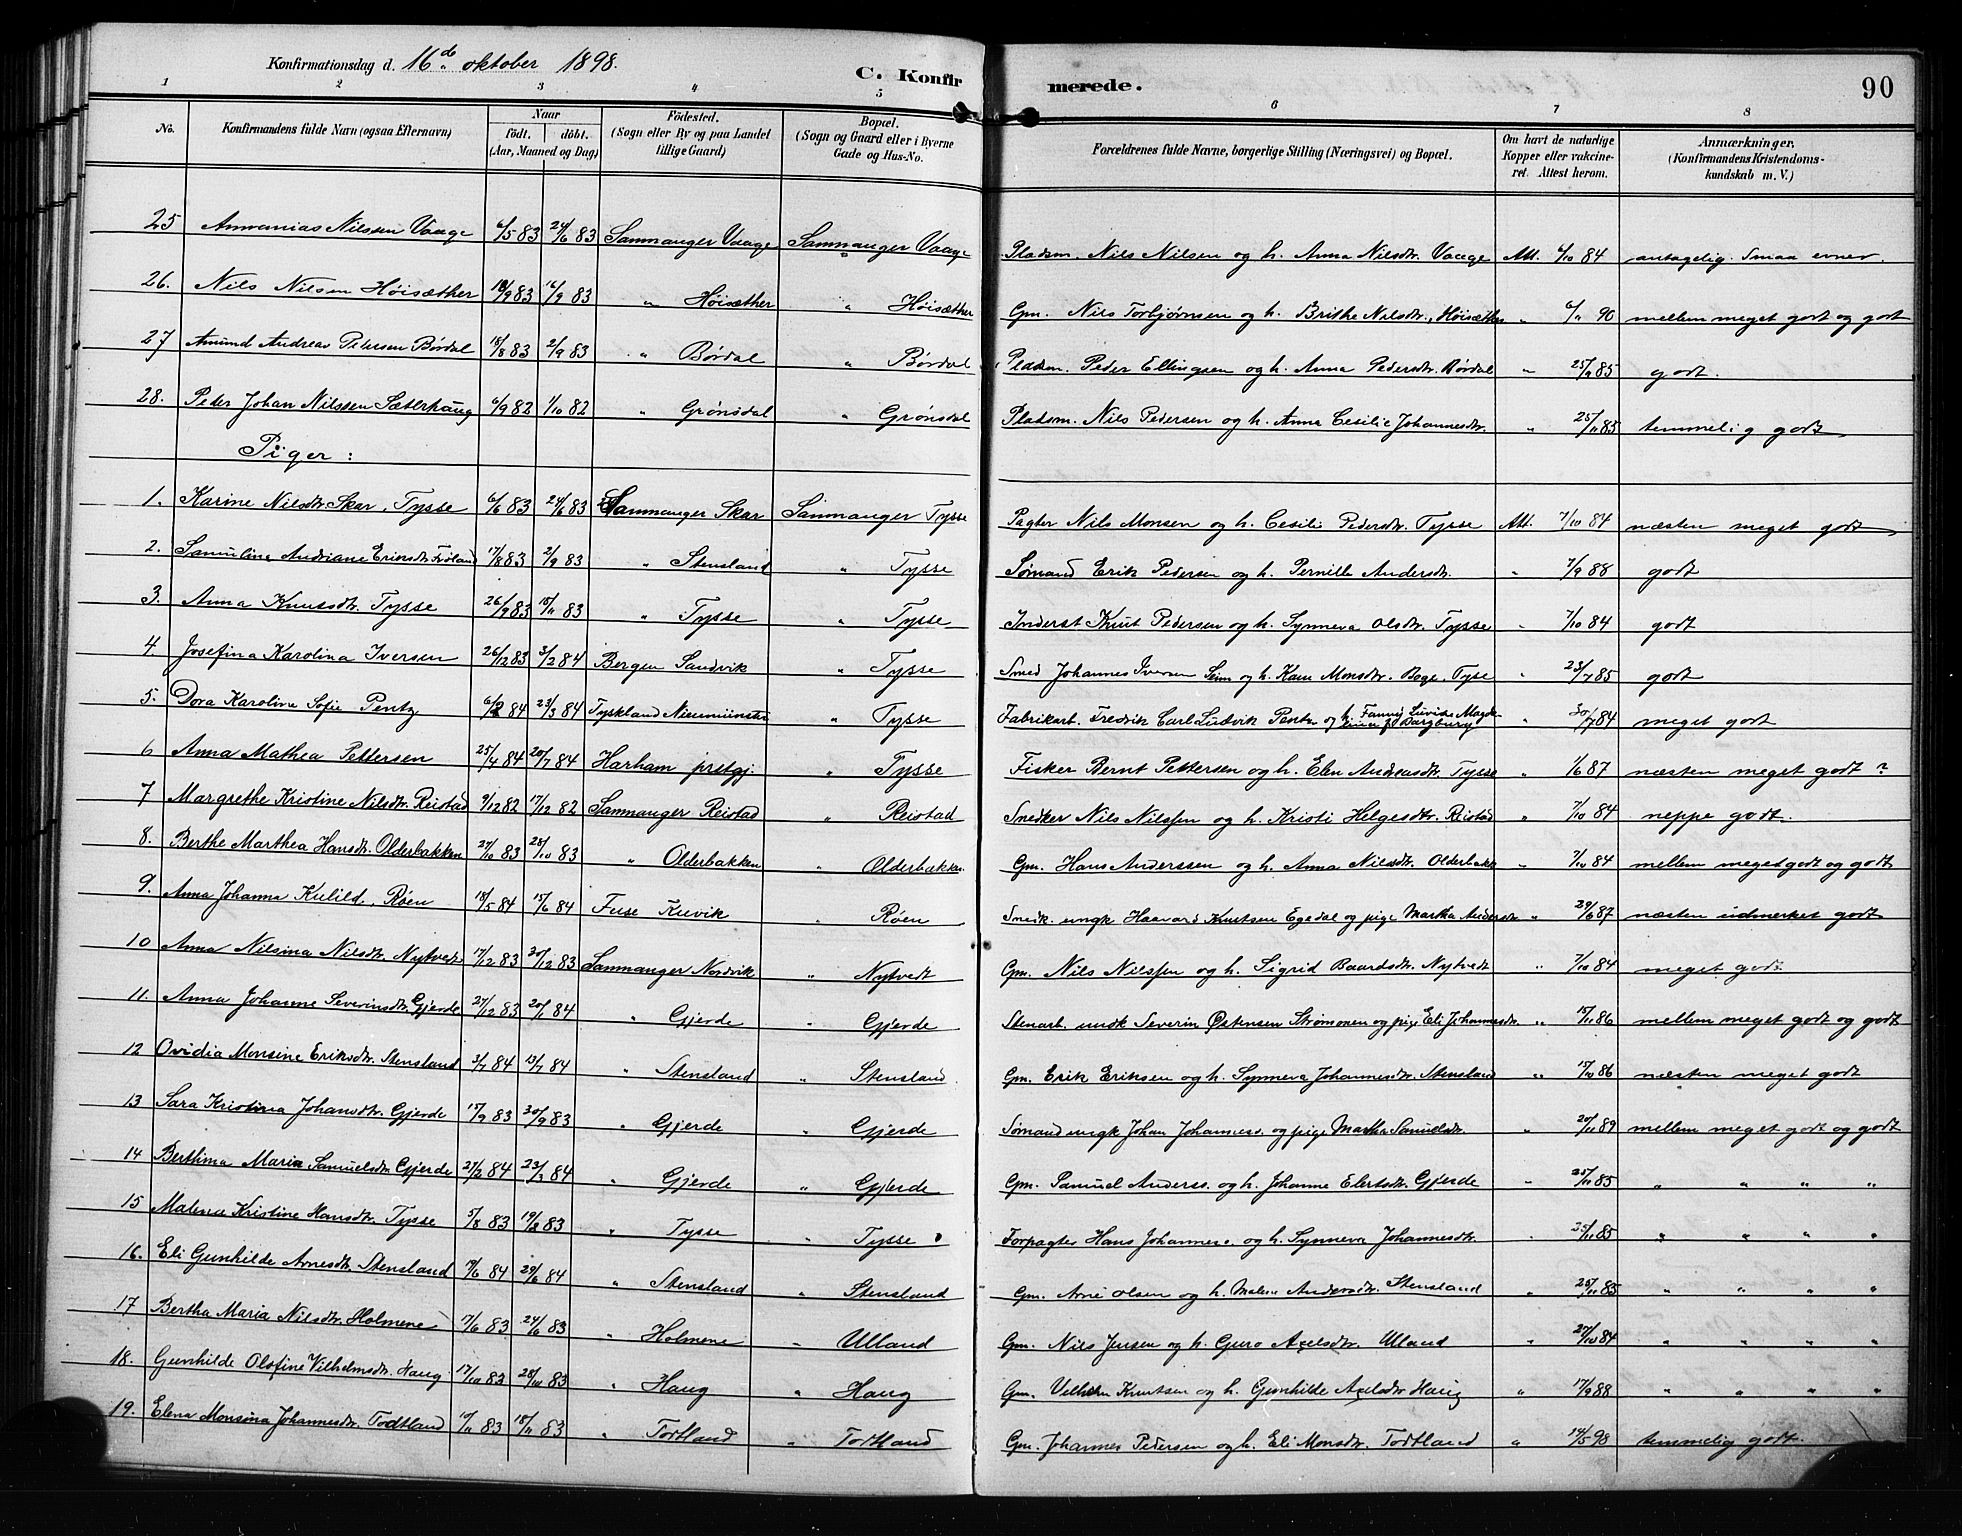 Konfirmationsdag d. 16de oktober 1898.
C. Konfirmerede.
90
1 2 3 4 5 6 7 8
No.
Konfirmandens fulde Navn (ogsaa Efternavn)
Naar
født. døbt.
(Aar, Maaned og Dag)
Fødested.
(Sogn eller By og paa Landet tillige Gaard)
Bopæl.
(Sogn og Gaard eller i Byerne Gade og Hus-No.
Forældrenes fulde Navne, borgerlige Stilling (Næringsvei) og Bopæl.
Om havt de naturlige Kopper eller vakcineret. Attest herom.
Anmærkninger.
(Konfirmandens Kristendomskundskab m. V.)
25 Annanias Nilssen Vaage 6/5 83 24/6 83 Sammanger Vaage Sammanger Vaage Pladsm. Nils Nilsen og h. Anna Nilsdtr. Vaage Att. 6/10 84 antagelig. Smaa evner.
26. Nils Nilsen Høisæther 83 16/9 83 " Høisæther " Høisæther Gm. Nils Torbjørnsen og h. Brithe Nilsdtr., Høisæther " 6/11 90 mellem meget godt og godt
27 Amund Andreas Petersen Børdal 18/8 83 2/9 83 " Børdal " Børdal Pladsm. Peder Ellingsen og h. Anna Pedersdtr. Børdal " 25/9 85 godt.
28. Peder Johan Nilssen Sæterhaug 6/9 82 1/10 82 " Grønsdal " Grønsdal Pladsm. Nils Pedersen og h. Anna Cesilie Johannesdtr. " 25/11 85 temmelig godt
Piger:
1. Karine Nilsdtr. Skar, Tysse 6/6 83 24/6 83 Sammanger Skar Sammanger Tysse Pagter Nils Monsen og h. Cesili Pedersdtr. Tysse Att. 7/10 84 næsten meget godt
2. Samuline Andriane Eriksdtr. 17/8 83 2/9 83 " Stensland " Tysse Sømand Erik Pedersen og h. Pernille Andersdtr. " 7/9 88 godt
3. Anna Knutsdtr. Tysse 26/9 83 18/11 83 " Tysse " Tysse Inderst Knut Pedersen og h. Synneva Olsdtr. Tysse " 7/10 84 godt
4. Josefina Karolina Iversen 26/12 83 3/2 84 Bergen Sandvik " Tysse Smed Johannes Iversen Seim og h. Kari Monsdtr. Boge. Tyse " 23/7 85 godt
5. Dora Karoline Sofie Pentz 6/2 84 23/3 84 Tyskland Nieumünster " Tysse Fabrikarb. Fredrik Carl Ludvik Pentz og h. Fanny Luvise Magda " 30/7 84 meget godt
6 Anna Mathea Pettersen 25/4 84 20/7 84 Harham prstgj. " Tysse Fisker Bernt Pettersen og h. Elen Andreasdtr. Tysse " 1/6 87 næsten meget godt?
7 Margrethe Kristine Nilsdtr. Reistad 9/12 82 17/12 82 Sammanger Reistad " Reistad Snedker Nils Nilssen og h. Kristi Helgesdtr. Reistad " 7/10 84 neppe godt.
8. Berthe Marthea Hansdtr. Olderbakken 27/10 83 28/10 83 " Olderbakken " Olderbakken Gm. Hans Anderssen og h. Anna Nilsdtr. Olderbakk " 7/10 84 mellem meget godt og godt
9. Anna Johanna Kulild, Røen 18/5 84 15/6 84 Fuse " Røen Snedk. ungk. Haavard Knutsen Egedal og pige Martha Andersdr " 29/6 87 næsten udmerket godt
10 Anna Nilsina Nilsdtr. Nytvedt 17/12 83 30/12 83 Sammanger Nordvik " Nytvedt Gm. Nils Nilssen og h. Sigrid Baardsdtr. Nytvedt " 7/10 84 meget godt
11. Anna Johanne Severinsdtr. Gjerde 27/12 83 20/1 84 " Gjerde " Gjerde Stenarb. undk Severin Østensen Strømonen og pige Eli Johannesdtr. " 15/11 86 mellem meget godt og godt
12 Ovidia Monsine Eriksdtr. Stensland 3/7 84 13/7 84 " Stensland " Stensland Gm. Erik Eriksen og h. Synneva Johannesdtr. Stensland " 86 næsten meget godt
13 Sara Kristina Johansdtr. Gjerde 15/9 83 30/9 83 " Gjerde " Gjerde Sømand ungk Johan Johanness. og pige Martha Samuelsdtr. " 20/11 89 mellem meget godt og godt
14 Berthina Maria Samuelsdtr Gjerde 27/2 84 23/3 84 " Gjerde " Gjerde Gm. Samuel Anderss. og h. Johanne Elertsdtr. Gjerde " 25/11 85 " " " "
15 Malena Kristine Hansdtr. Tysse 5/8 83 19/8 83 " Tysse " Tysse Forpagter Hans Johanness. og h. Synneva Johannesdtr. " 25/11 85 " " " "
16. Eli Gunhilde Arnesdtr. Stensland 84 29/6 84 " Stensland " Stensland Gm. Arne Olsen og h. Malene Andersdtr. Stensland " 25/11 85 " " " "
17 Bertha Maria Nilsdtr. Holmene 7/6 83 24/6 83 " Holmene " Ulland Gm. Nils Jensen og h. Guro Axelsdtr. Ulland " 27/10 84 " " " "
18. Gunhilde Olsfine Vilhelmsdtr. Haug 17/10 83 28/10 83 " Haug " Haug Gm. Vilhelm Knutsen og h. Gunhilde Axelsdtr Haug " 17/9 88 " " " "
19. Elena Monsina Johannesdtr. Todtland 10/11 83 18/11 83 " Todtland " Todtland Gm. Johannes Pedersen og h. Eli Monsdtr. Todtland " 19/5 98 temmelig godt.